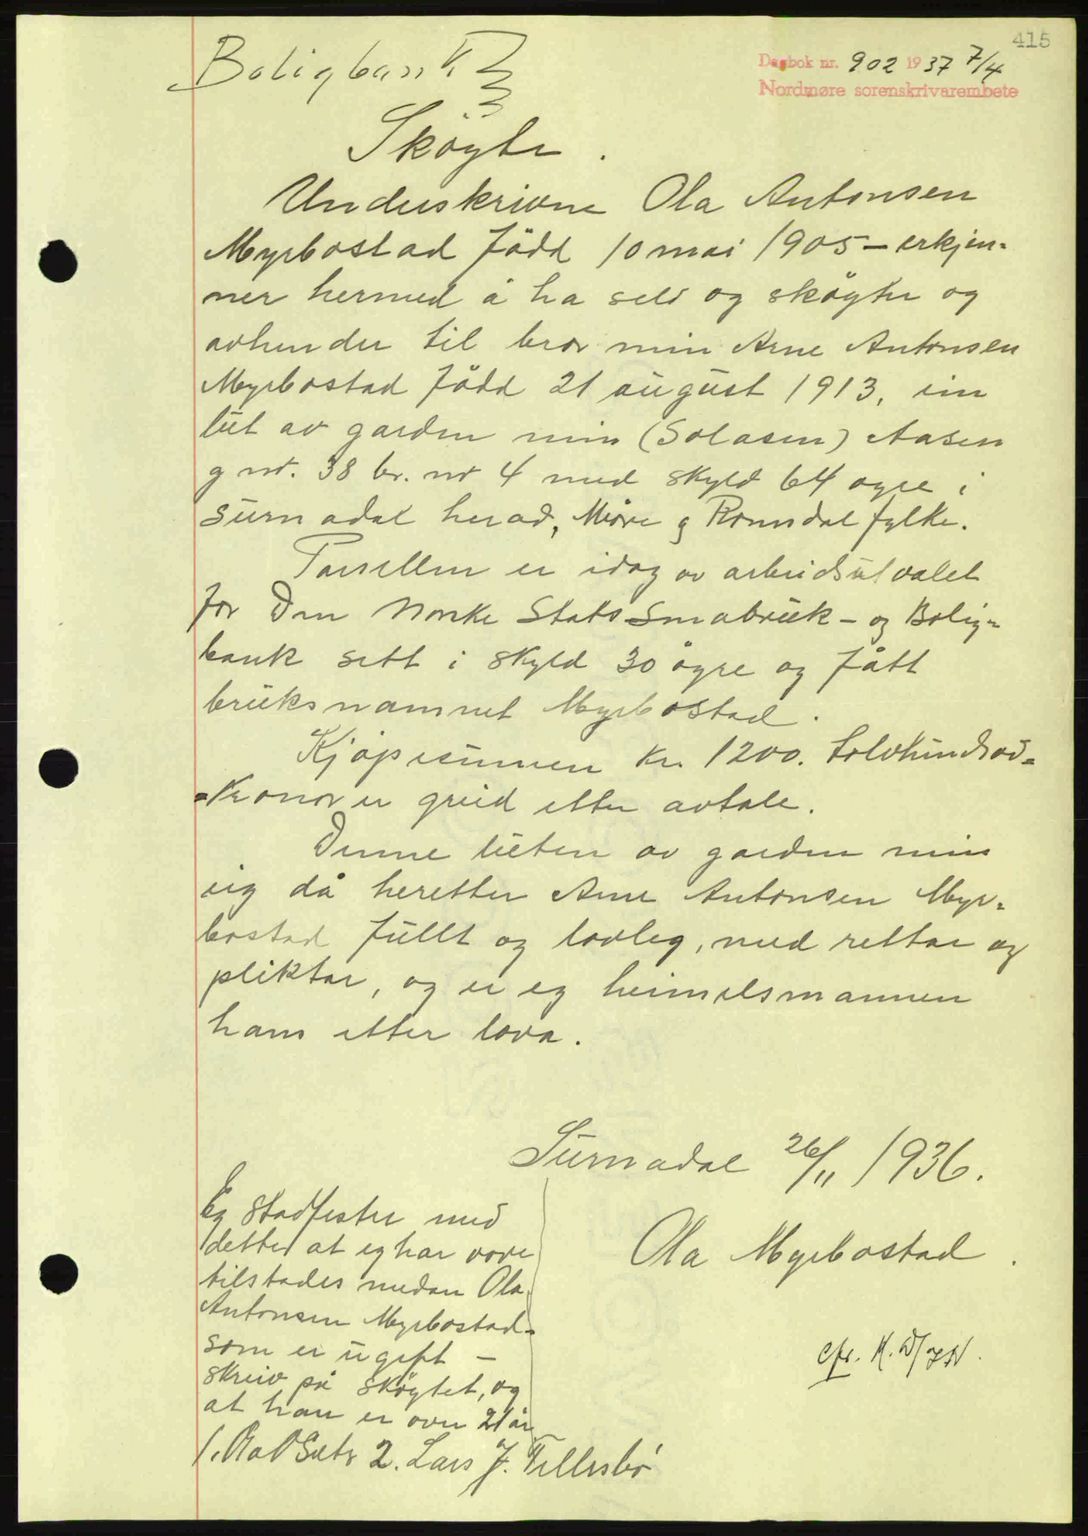 415
Boligbank
Dagbok nr. 902 1937 7/4
Nordmøre sorenskrivarembete
Skøyte.
Underskrivne Ola Antonsen
Myrbostad född 10 mai 1905 – erkjen-
ner hermed å ha seld og skøyter og
avhender til bror min Arne Antonsen
Myrbostad född 21 august 1913, ein
lut av garden min (Solåsen) Aasen
g nr. 38 br. nr 4 med skyld 64 øyre i
Surnadal herad, Møre og Romsdal fylke.
Parsellen er idag av arbeidsutvalet
for Den Norske Stats Småbruk- og Bolig-
bank sett i skyld 30 øyre og fått
bruksnamnet Myrbostad.
Kjøpesummen kr. 1200. tolvhundrad-
-kronor er greid etter avtale.
Denne luten av garden min
eig då heretter Arne Antonsen Myr-
bostad fullt og lovleg, med rettar og
pliktar, og er eg heimelsmannen
hans etter lova.
Surnadal 26/11 1936.
Ola Myrbostad.
Eg stadfester med
dette at eg har vore
tilstades medan Ola
Antonsen Myrbostad-
som er ugift –
skreiv på skøytet, og
at han er over 21 år
cfr.
1. Ola O Sæter 2. Lars J. Tellesbø